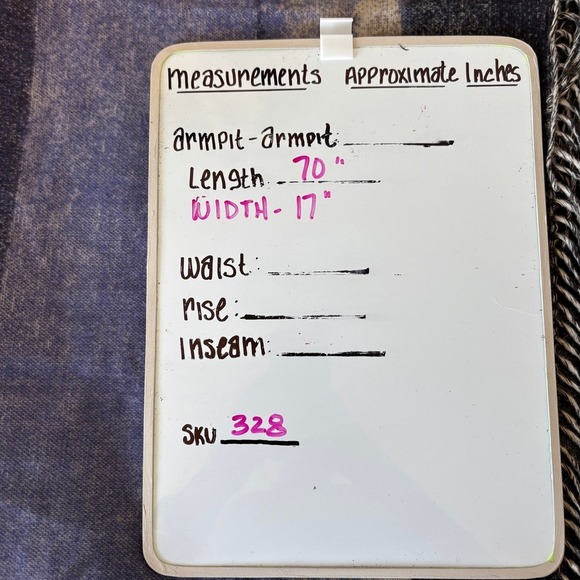 measurements Approximate Inches
armpit-armpit:
Length: 70"
WIDTH- 17"
waist:
rise:
inseam:
SKU 328